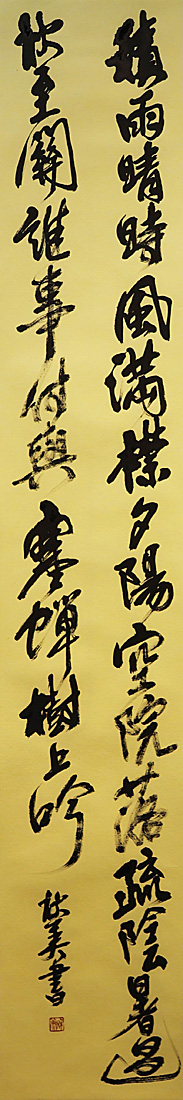 積雨晴時風滿襟夕陽空院落疏陰暑過
秋至關誰事付與寒蟬樹上吟
秋美書